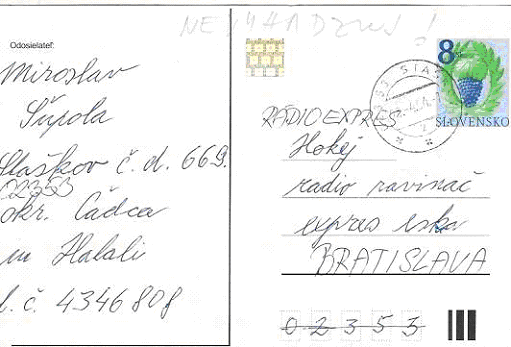 NEVYHADZUJ!
Odosielateľ:
Miroslav
Šupola
Staškov č.d. 669.
02353
okr. Čadca
m Halali
t.č. 4346808
8
SLOVENSKO
RÁDIO EXPRES
Hokej
radio ravinač
expres eska
BRATISLAVA
0 2 3 5 3